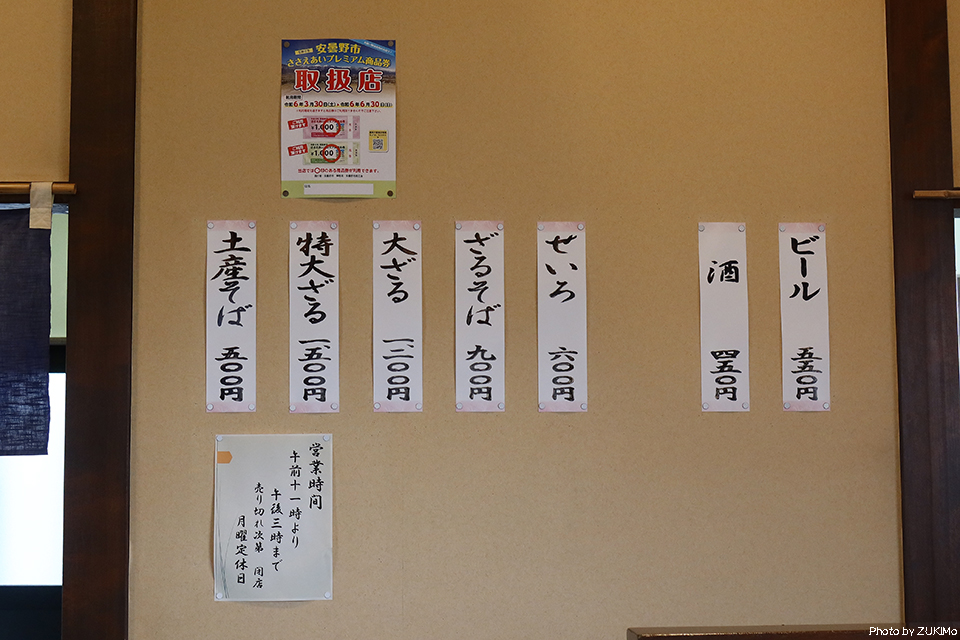 安曇野市
ささえあいプレミアム商品券
取扱店
令和6年3月30日(土)▸令和6年6月30日(日)
¥1,000
¥1,000
ビール 五五〇円
酒 四五〇円
せいろ 六〇〇円
ざるそば 九〇〇円
大ざる 一、二〇〇円
特大ざる 一、五〇〇円
土産そば 五〇〇円
営業時間
午前十一時より
午後三時まで
売り切れ次第 閉店
月曜定休日
Photo by ZUKIMo